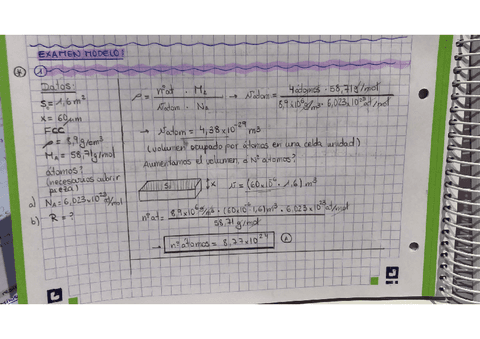 EXAMEN MODELO 1
* 1
Datos:
S = 1,6 m²
x = 60 µm
FCC
ρ = 8,9 g/cm³
Ma = 58,71 g/mol
átomos?
(necesarios cubrir
pieza)
a) NA = 6,023x10²³ at/mol
b) R = ?
ρ = nºat · Ma / Vatom · NA → Vatom = 4 átomos · 58,71 g/mol / 8,9x10⁶ g/m³ · 6,023x10²³ at/mol
→ Vatom = 4,38x10⁻²⁹ m³
(volumen ocupado por átomos en una celda unidad)
Aumentamos el volumen, a Nº átomos?
S1 x V = (60x10⁻⁶ · 1,6) m³
nºat = 8,9x10⁶ g/m³ · (60x10⁻⁶ · 1,6) m³ · 6,023x10²³ at/mol / 58,71 g/mol
→ nº átomos = 8,77x10²⁴